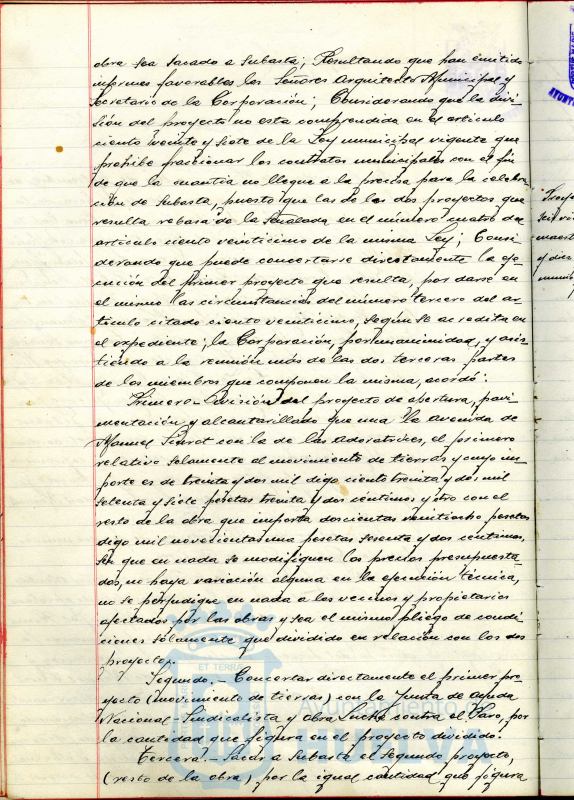 obra sea sacado a subasta; Resultando que han emitido
informes favorables los Señores Arquitecto Municipal y
Secretario de la Corporación; Considerando que la divi-
sión del proyecto no esta comprendida en el artículo
ciento veinte y siete de la Ley municipal vigente que
prohibe fraccionar los contratos municipales con el fin
de que la cuantia no llegue a la precisa para la celebra-
ción de subasta, puesto que las de los dos proyectos que
resulta rebasa de la señalada en el número cuatro del
artículo ciento veinticinco de la misma Ley; Consi-
derando que puede concertarse directamente la eje-
cución del primer proyecto que resulta, por darse en
el mismo las circunstancias del número tercero del ar-
tículo citado ciento veinticinco, según se acredita en
el expediente; la Corporación, por unanimidad, y asis-
tiendo a la reunión más de las dos terceras partes
de los miembros que componen la misma, acordó:
Primero.- División del proyecto de apertura, pavi-
mentación y alcantarillado que una la avenida de
Manuel Siurot con la de las Adoratrices, el primero
relativo solamente al movimiento de tierras y cuyo im-
porte es de treinta y dos mil digo ciento treinta y dos mil
setenta y siete pesetas treinta y dos céntimos y otro con el
resto de la obra que importa doscientas veintiocho pesetas
digo mil novecientas una pesetas sesenta y dos centimos,
sin que en nada se modifiquen los precios presupuesta-
dos, no haya variación alguna en la ejecución técnica,
no se perjudique en nada a los vecinos y propietarios
afectados por las obras y sea el mismo pliego de condi-
ciones sólamente que dividido en relación con los dos
proyectos.
Segundo.- Concertar directamente el primer pro-
yecto (movimiento de tierras) con la Junta de ayuda
Nacional-Sindicalista y obra Lucha contra el Paro, por
la cantidad que figura en el proyecto dividido.
Tercero.- Sacar a subasta el segundo proyecto,
(resto de la obra), por la igual cantidad que figura
ET TERRÆ
Ayuntamiento de
HUELVA